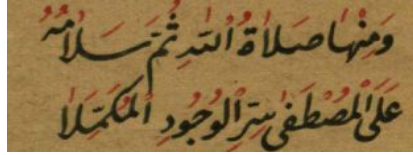 وَمِنْهَا صَلَاةُ اللّٰهِ ثُمَّ سَلَامُهُ
عَلَى الْمُصْطَفٰى سِرِّ الْوُجُودِ الْمُكَمَّلَا